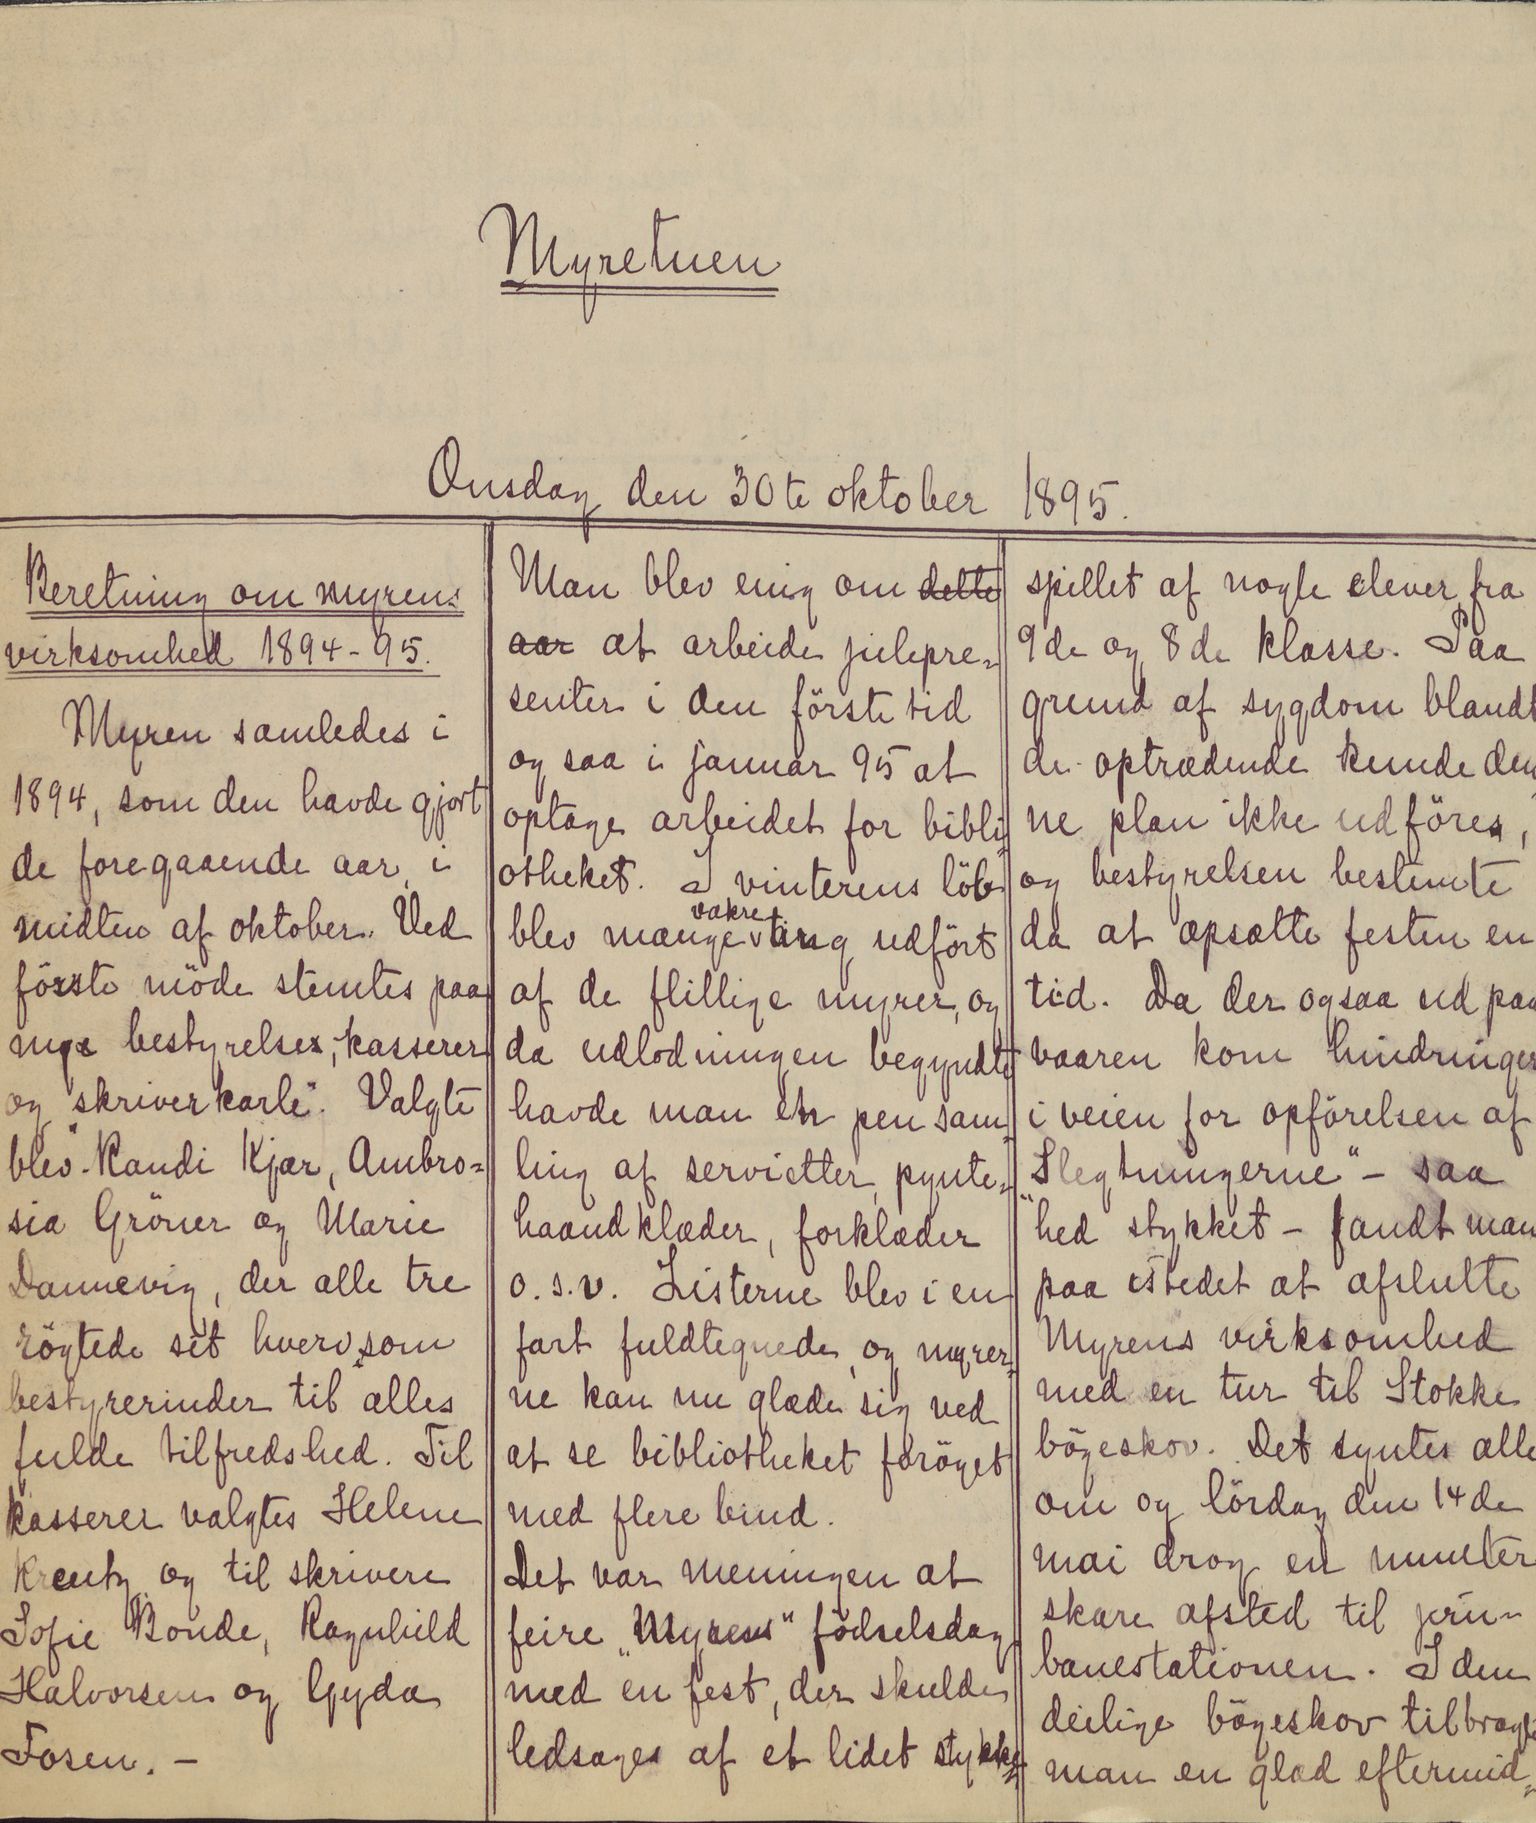 Myretuen
Onsdag den 30te oktober 1895.
Beretning om myrens
virksomhed 1894-95.
Myren samledes i
1894, som den havde gjort
de foregaaende aar, i
midten af oktober. Ved
første möde stemtes paa
nye bestyrelser, kasserer
og "skriverkarle". Valgte
blev Randi Kjær, Ambro=
sia Gröner og Marie
Dannevig, der alle tre
rögtede sit hverv som
bestyrerinder til alles
fulde tilfredshed. Til
kasserer valgtes Helene
Kreutz og til skrivere
Sofie Bonde, Ragnhild
Halvorsen og Gyda
Fosen. -
Man blev enig om dette
aar at arbeide julepre=
senter i den förste tid
og saa i januar 95 at
optage arbeidet for bibli=
otheket. I vinterens löb
blev mange vakre ting udfört
af de flittige myrer, og
da udlodningen begyndte
havde man en pen sam=
ling af servietter, pynte=
haandklæder, forklæder
o.s.v. Listerne blev i en
fart fuldtegnede, og myrer=
ne kan nu glæde sig ved
at se bibliotheket forøget
med flere bind.
Det var meningen at
feire "Myrens" födselsdag
med en fest, der skulde
ledsages af et lidet stykke=
spillet af nogle elever fra
9de og 8de klasse. Paa
grund af sygdom blandt
de optrædende kunde den=
ne plan ikke udföres,
og bestyrelsen bestemte
da at opsætte festen en
tid. Da der ogsaa ud paa
vaaren kom hindringer
i veien for opförelsen af
"Slegtningerne" - saa
hed stykket - fandt man
paa istedet at afslutte
Myrens virksomhed
med en tur til Stokke
bögeskov. Det syntes alle
om og lördag den 14de
mai drog en munter
skare afsted til jern=
banestationen. I den
deilige bögeskov tilbragte
man en glad eftermid=